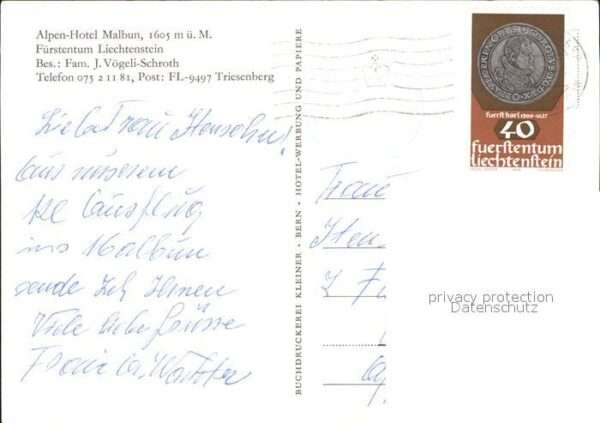 Alpen-Hotel Malbun, 1605 m ü. M.
Fürstentum Liechtenstein
Bes.: Fam. J. Vögeli-Schroth
Telefon 075 2 11 81, Post: FL-9497 Triesenberg
Liebe Frau Hensohn!
Aus unserem
Ausflug
ins Malbun
sende Ich Ihnen
Viele liebe Grüsse
Frau
BUCHDRUCKEREI KLEINER - BERN - HOTEL-WERBUNG UND PAPIERE
fuerst karl 1569-1627
40
fuerstentum
liechtenstein
Frau
Hen
privacy protection
Datenschutz